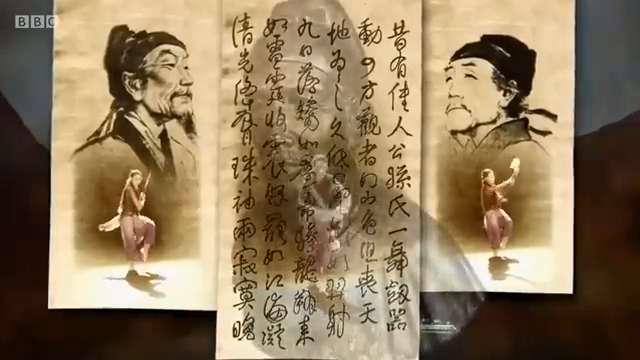 BBC
昔有佳人公孫氏一舞劔器
動四方觀者如山色沮喪天
地為之久低昂㸌如羿射
九日落矯如羣帝驂龍翔來
如雷霆收震怒罷如江海凝
清光絳唇珠袖兩寂寞晚